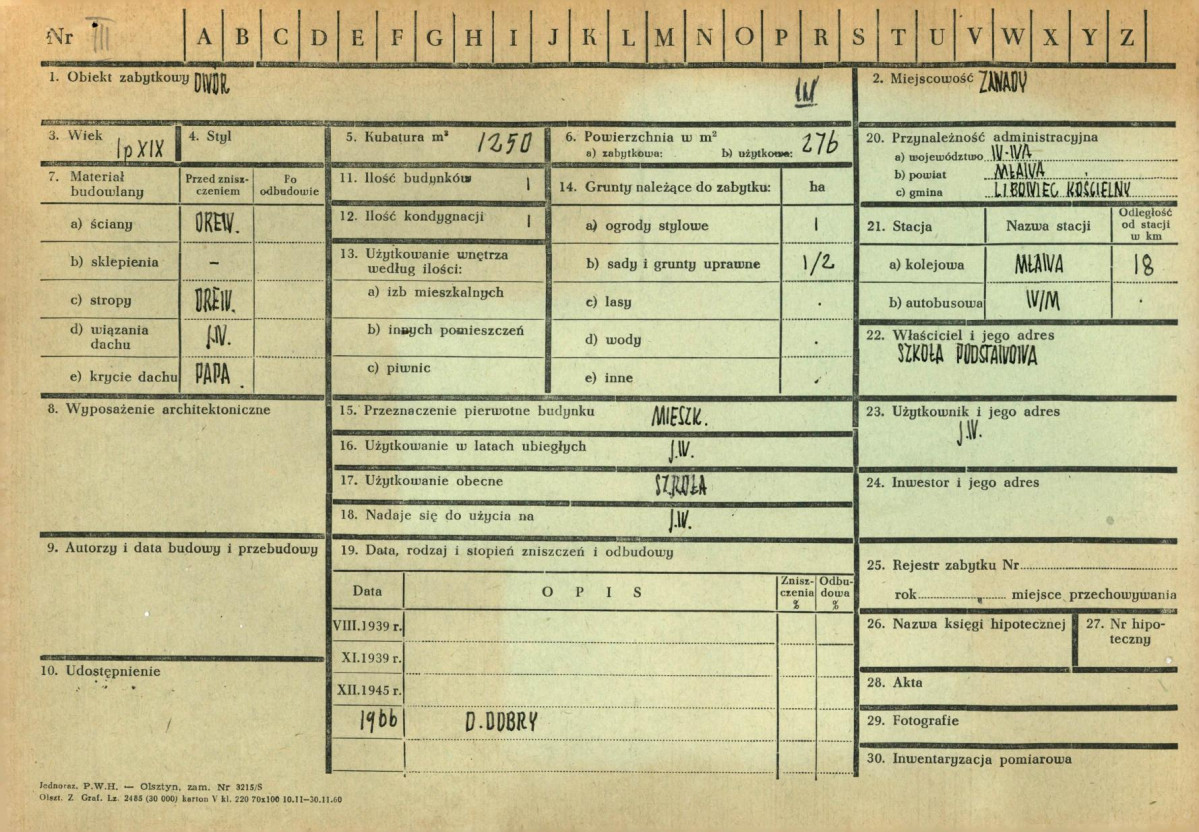 Nr III A B C D E F G H I J K L M N O P R S T U V W X Y Z
1. Obiekt zabytkowy DWÓR
IM
2. Miejscowość ZAWADY
3. Wiek I p XIX
4. Styl
5. Kubatura m³ 1250
6. Powierzchnia w m² 276
a) zabytkowa: b) użytkowa:
7. Materiał budowlany
Przed zniszczeniem
Po odbudowie
a) ściany DREW.
b) sklepienia –
c) stropy DREW.
d) wiązania dachu J.W.
e) krycie dachu PAPA.
8. Wyposażenie architektoniczne
9. Autorzy i data budowy i przebudowy
10. Udostępnienie
11. Ilość budynków 1
12. Ilość kondygnacji 1
13. Użytkowanie wnętrza
według ilości:
a) izb mieszkalnych
b) innych pomieszczeń
c) piwnic
14. Grunty należące do zabytku: ha
a) ogrody stylowe 1
b) sady i grunty uprawne 1/2
c) lasy .
d) wody .
e) inne .
15. Przeznaczenie pierwotne budynku MIESZK.
16. Użytkowanie w latach ubiegłych J.W.
17. Użytkowanie obecne SZKOŁA
18. Nadaje się do użycia na J.W.
19. Data, rodzaj i stopień zniszczeń i odbudowy
Data OPIS Zniszczenia % Odbudowa %
VIII.1939 r.
XI.1939 r.
XII.1945 r.
1966 D. DOBRY
20. Przynależność administracyjna
a) województwo W-WA
b) powiat MŁAWA
c) gmina LIPOWIEC KOŚCIELNY
21. Stacja Nazwa stacji Odległość od stacji w km
a) kolejowa MŁAWA 18
b) autobusowa W/M .
22. Właściciel i jego adres
SZKOŁA PODSTAWOWA
23. Użytkownik i jego adres
J.W.
24. Inwestor i jego adres
25. Rejestr zabytku Nr
rok miejsce przechowywania
26. Nazwa księgi hipotecznej
27. Nr hipoteczny
28. Akta
29. Fotografie
30. Inwentaryzacja pomiarowa
Jednoraz. P.W.H. — Olsztyn, zam. Nr 3215/S
Olszt. Z. Graf. Lz. 2485 (30 000) karton V kl. 220 70x100 10.11—30.11.60